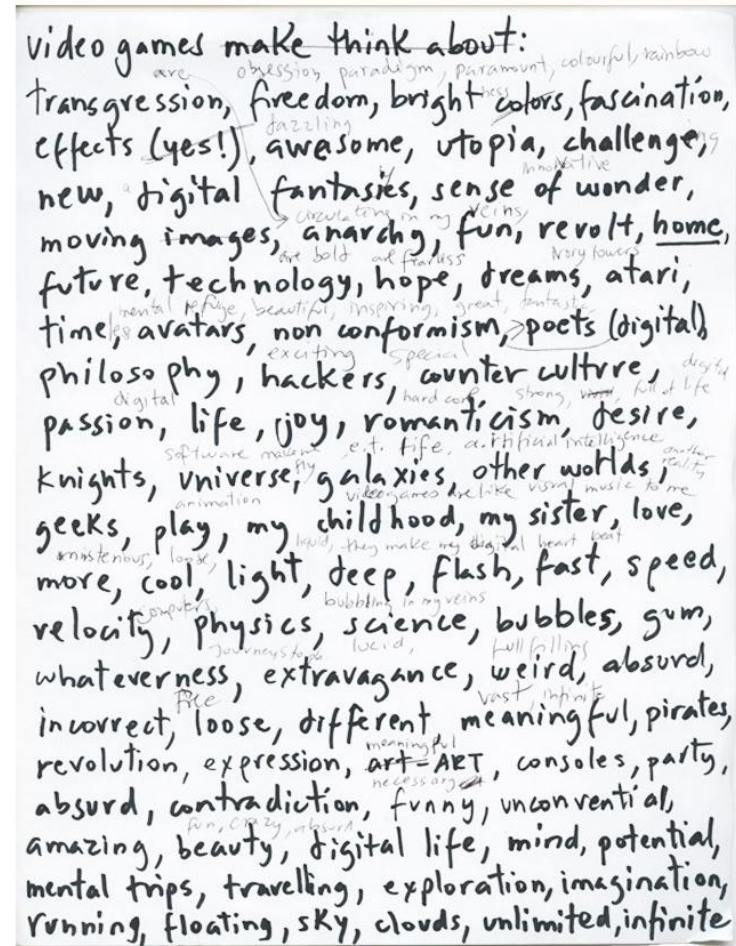 video games make think about:
are obsession, paradigm, paramount, colourful, rainbow
transgression, freedom, brightness colors, fascination,
dazzling
effects (yes!), awesome, utopia, challenge, ing
innovative
new, a digital fantasies, sense of wonder,
circulating in my veins
moving images, anarchy, fun, revolt, home,
are bold are fearless ivory towers
future, technology, hope, dreams, atari,
mental refuge, beautiful, inspiring, great, fantastic
time, avatars, non conformism, poets (digital)
exciting special
philosophy, hackers, counter culture, digital
digital hard core strong, full of life
passion, life, joy, romanticism, desire,
software e.t. life, artificial intelligence another reality
knights, universe, galaxies, other worlds,
animation videogames are like visual music to me
geeks, play, my childhood, my sister, love,
loose, liquid, they make my digital heart beat
more, cool, light, deep, flash, fast, speed,
computers, bubbling in my veins
velocity, physics, science, bubbles, gum,
lucid, fullfilling
whateverness, extravagance, weird, absurd,
free vast, infinite
incorrect, loose, different meaningful, pirates,
meaningful
revolution, expression, art = ART, consoles, party,
necessary
absurd, contradiction, funny, unconvential,
fun, crazy, absurd
amazing, beauty, digital life, mind, potential,
mental trips, travelling, exploration, imagination,
running, floating, sky, clouds, unlimited, infinite